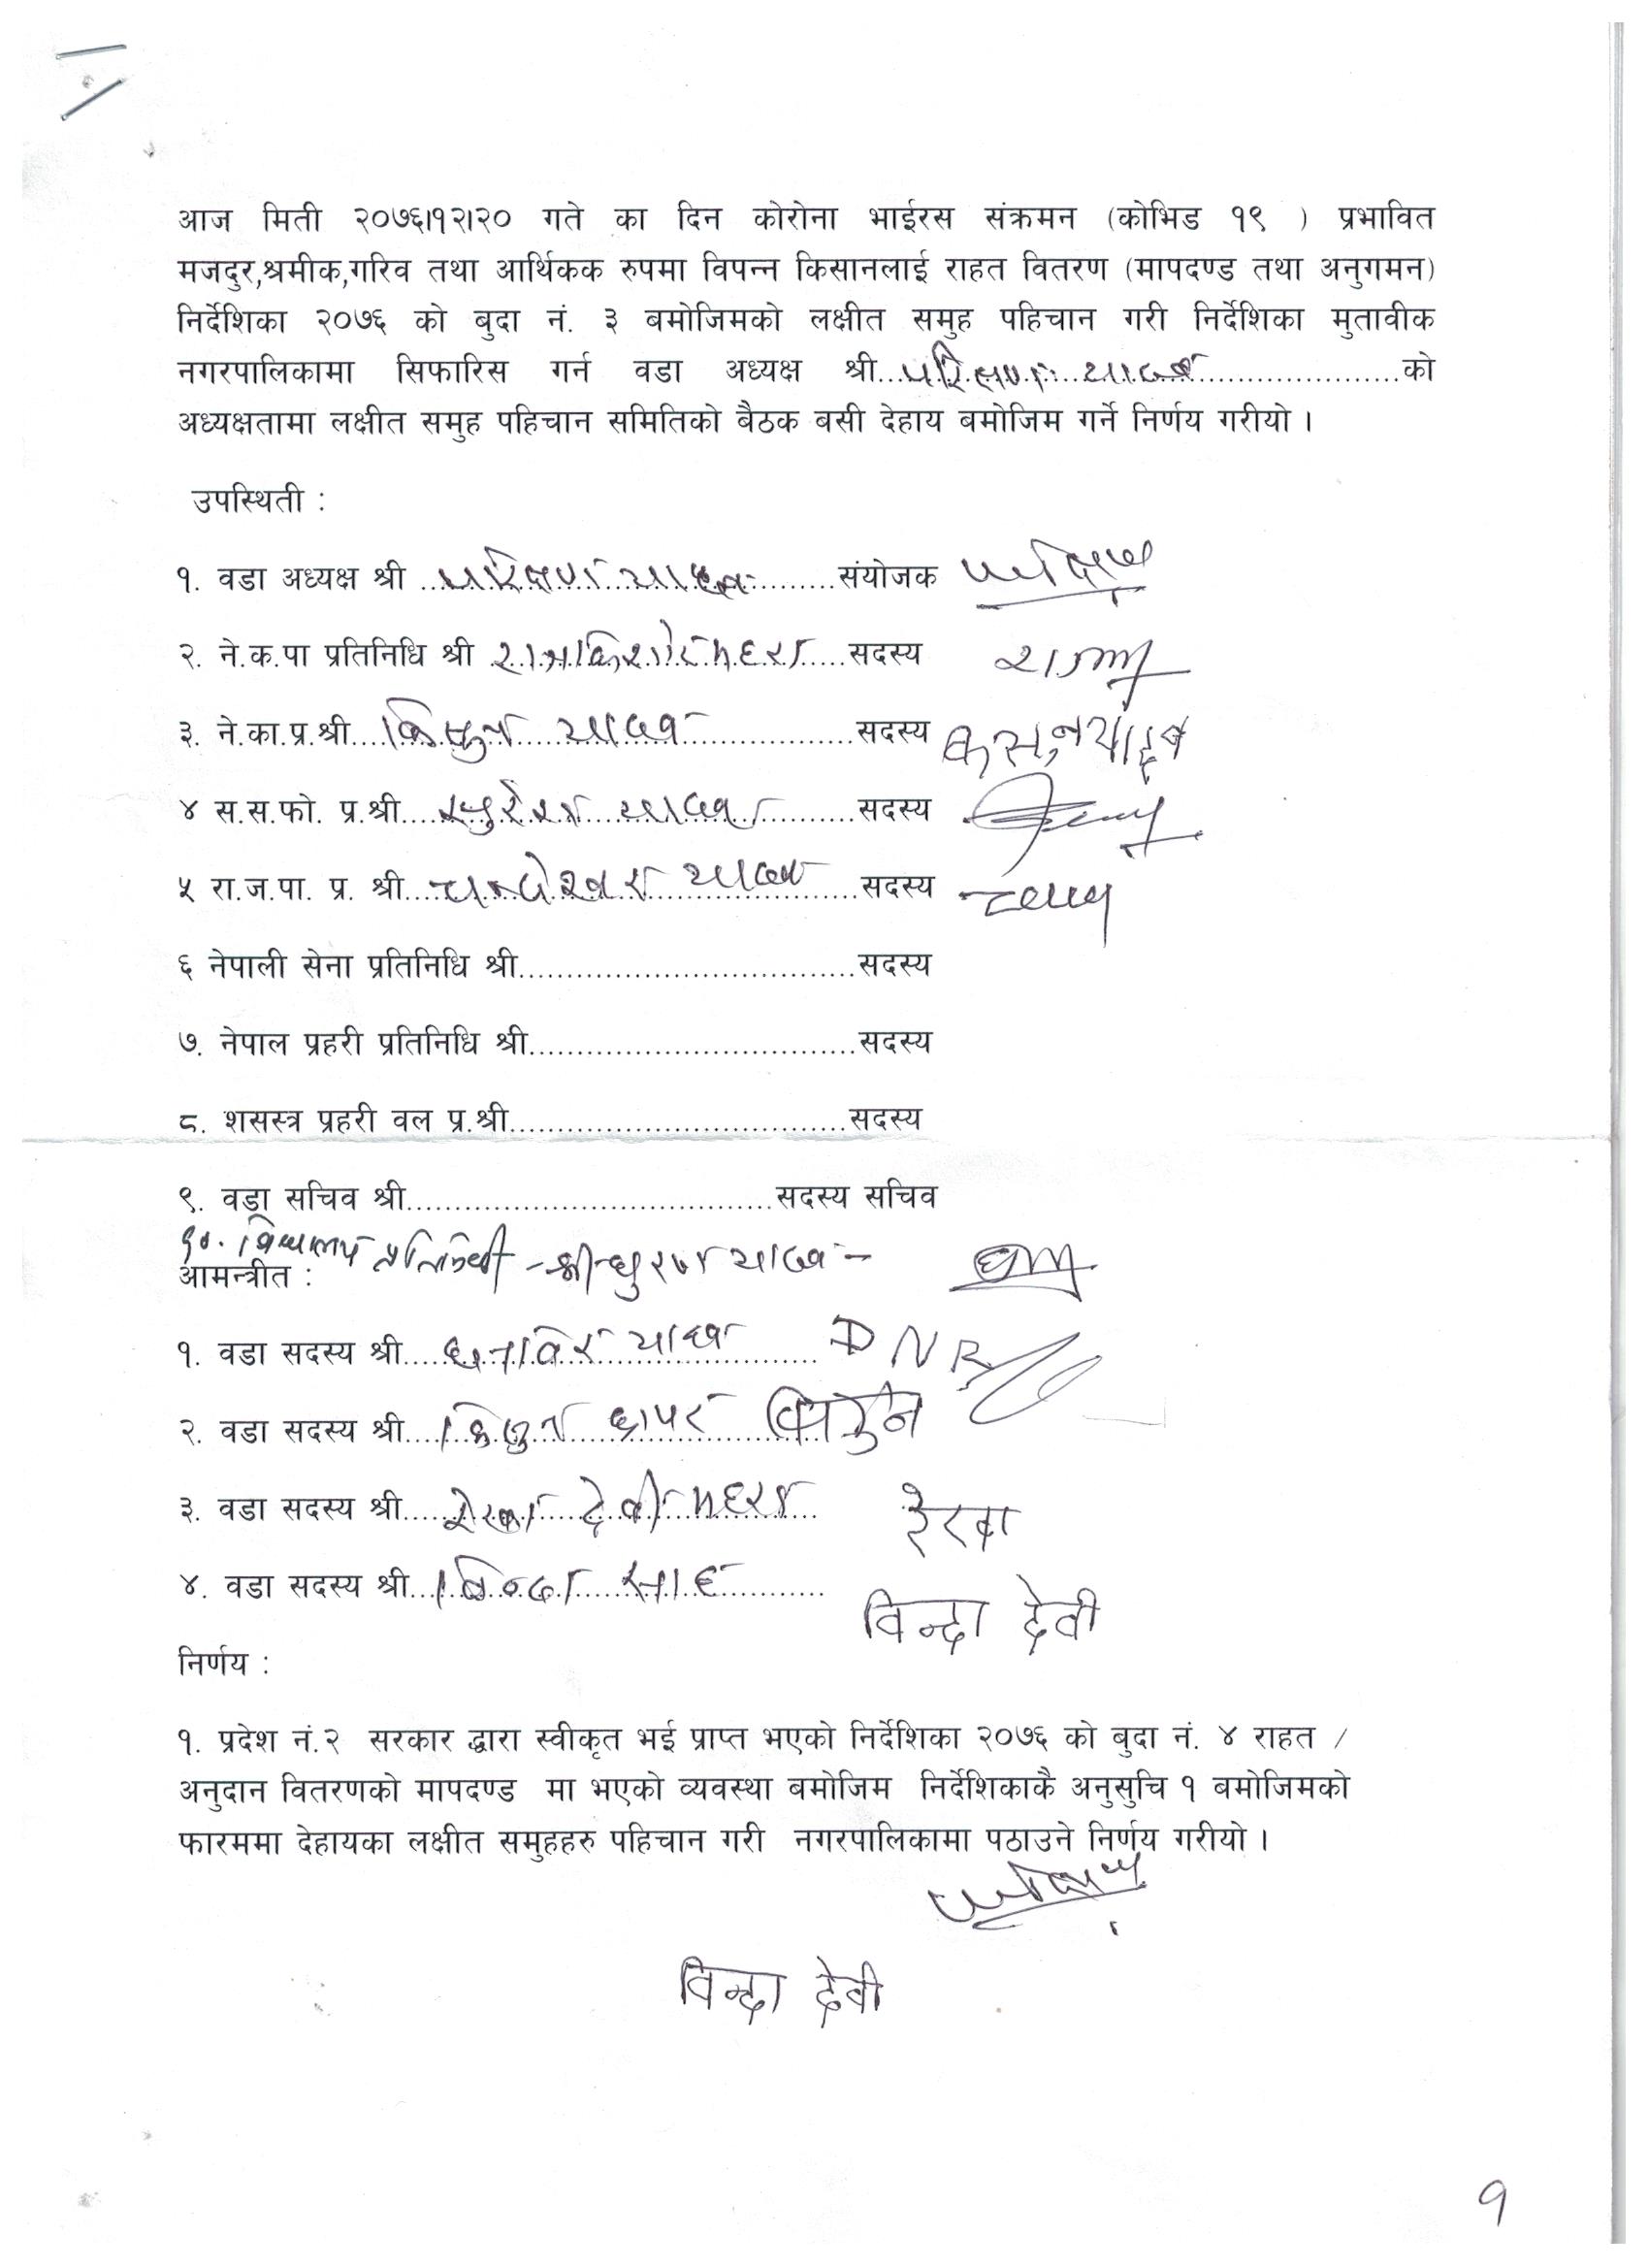 आज मिती २०७६।१२।२० गते का दिन कोरोना भाईरस संक्रमन (कोभिड १९ ) प्रभावित
मजदुर,श्रमीक,गरिव तथा आर्थिकक रुपमा विपन्न किसानलाई राहत वितरण (मापदण्ड तथा अनुगमन)
निर्देशिका २०७६ को बुदा नं. ३ बमोजिमको लक्षीत समुह पहिचान गरी निर्देशिका मुतावीक
नगरपालिकामा सिफारिस गर्न वडा अध्यक्ष श्री..परिक्षण यादव..को
अध्यक्षतामा लक्षीत समुह पहिचान समितिको बैठक बसी देहाय बमोजिम गर्ने निर्णय गरीयो ।
उपस्थिती :
१. वडा अध्यक्ष श्री ..परिक्षण यादव..संयोजक
२. ने.क.पा प्रतिनिधि श्री रामकिशोर महरा..सदस्य
३. ने.का.प्र.श्री....किसुन यादव..सदस्य
४ स.स.फो. प्र.श्री....सुरेश यादव..सदस्य
५ रा.ज.पा. प्र. श्री....चन्देश्वर यादव..सदस्य
६ नेपाली सेना प्रतिनिधि श्री..................................सदस्य
७. नेपाल प्रहरी प्रतिनिधि श्री.................................सदस्य
८. शसस्त्र प्रहरी वल प्र.श्री..................................सदस्य
९. वडा सचिव श्री.....................................सदस्य सचिव
१०. विद्यालय प्रतिनिधी - श्री यादव -
आमन्त्रीत :
१. वडा सदस्य श्री.... यादव DNR
२. वडा सदस्य श्री....
३. वडा सदस्य श्री....रेखा देवी महरा रेखा
४. वडा सदस्य श्री...विन्दा साह विन्दा देवी
निर्णय :
१. प्रदेश नं.२ सरकार द्धारा स्वीकृत भई प्राप्त भएको निर्देशिका २०७६ को बुदा नं. ४ राहत /
अनुदान वितरणको मापदण्ड मा भएको व्यवस्था बमोजिम निर्देशिकाकै अनुसुचि १ बमोजिमको
फारममा देहायका लक्षीत समुहहरु पहिचान गरी नगरपालिकामा पठाउने निर्णय गरीयो ।
विन्दा देवी
१